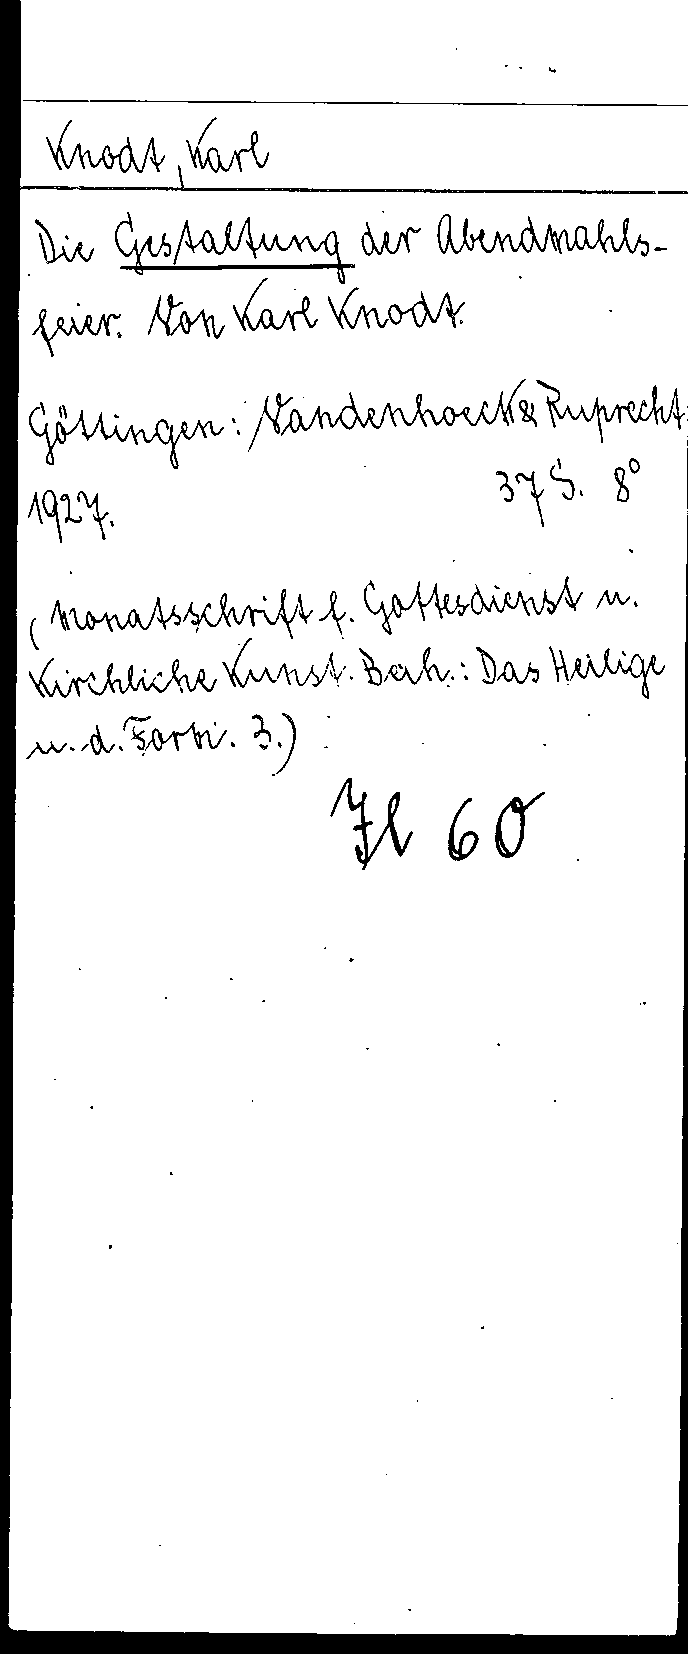 Knodt, Karl
Die Gestaltung der Abendmahls-
feier. Von Karl Knodt.
Göttingen: Vandenhoeck & Ruprecht
1927. 37 S. 8°
(Monatsschrift f. Gottesdienst u.
Kirchliche Kunst. Beih.: Das Heilige
u. d. Form. 3.)
Jl 60